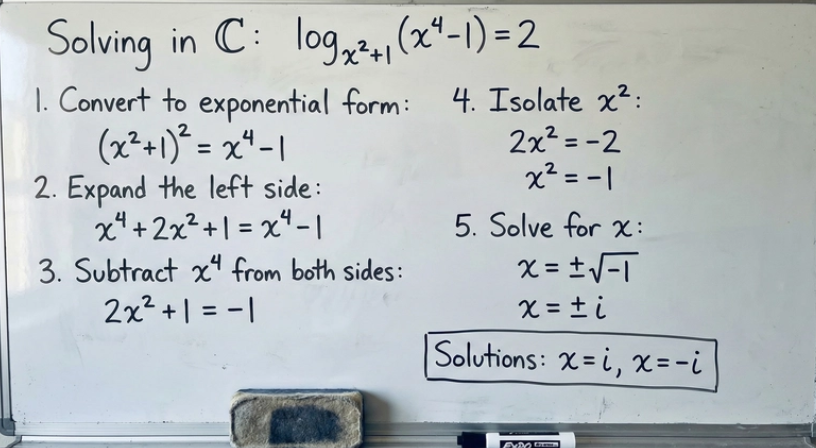 Solving in ℂ: log_{x²+1}(x⁴-1) = 2
1. Convert to exponential form:
(x²+1)² = x⁴-1
2. Expand the left side:
x⁴+2x²+1 = x⁴-1
3. Subtract x⁴ from both sides:
2x²+1 = -1
4. Isolate x²:
2x² = -2
x² = -1
5. Solve for x:
x = ±√-1
x = ± i
Solutions: x = i, x = -i
EXPO